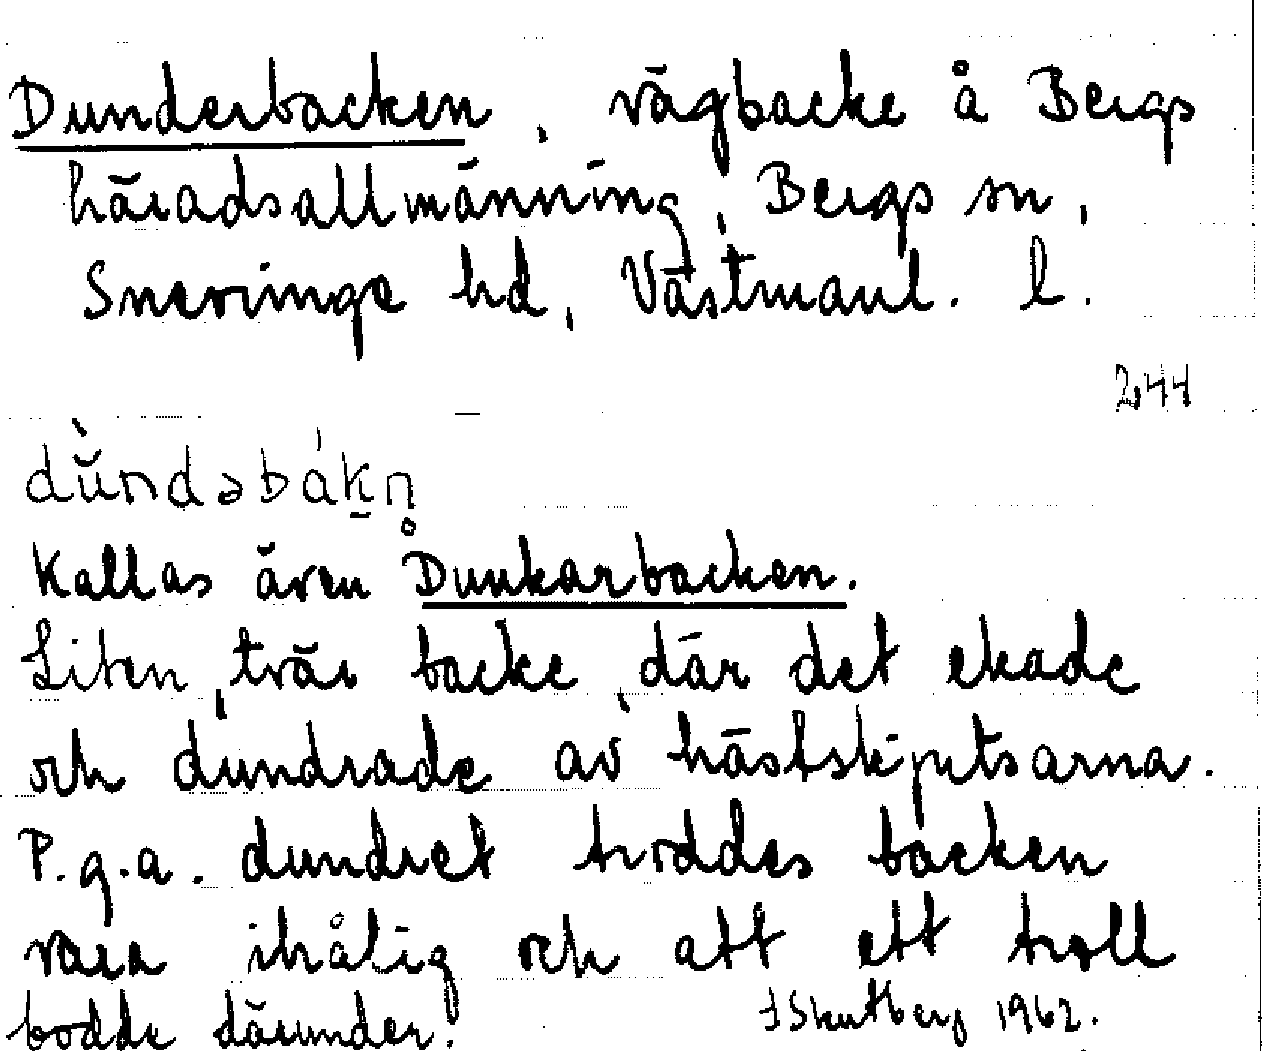 Dunderbacken, vägbacke å Bergs
häradsallmänning, Bergs sn,
Snevringe hd, Västmanl. l.
244
dùndəbákn̥
Kallas även Dunkarbacken.
Liten, tvär backe, där det ekade
och dundrade av hästskjutsarna.
P.g.a. dundret troddes backen
vara ihålig och att ett troll
bodde därunder.
1962.